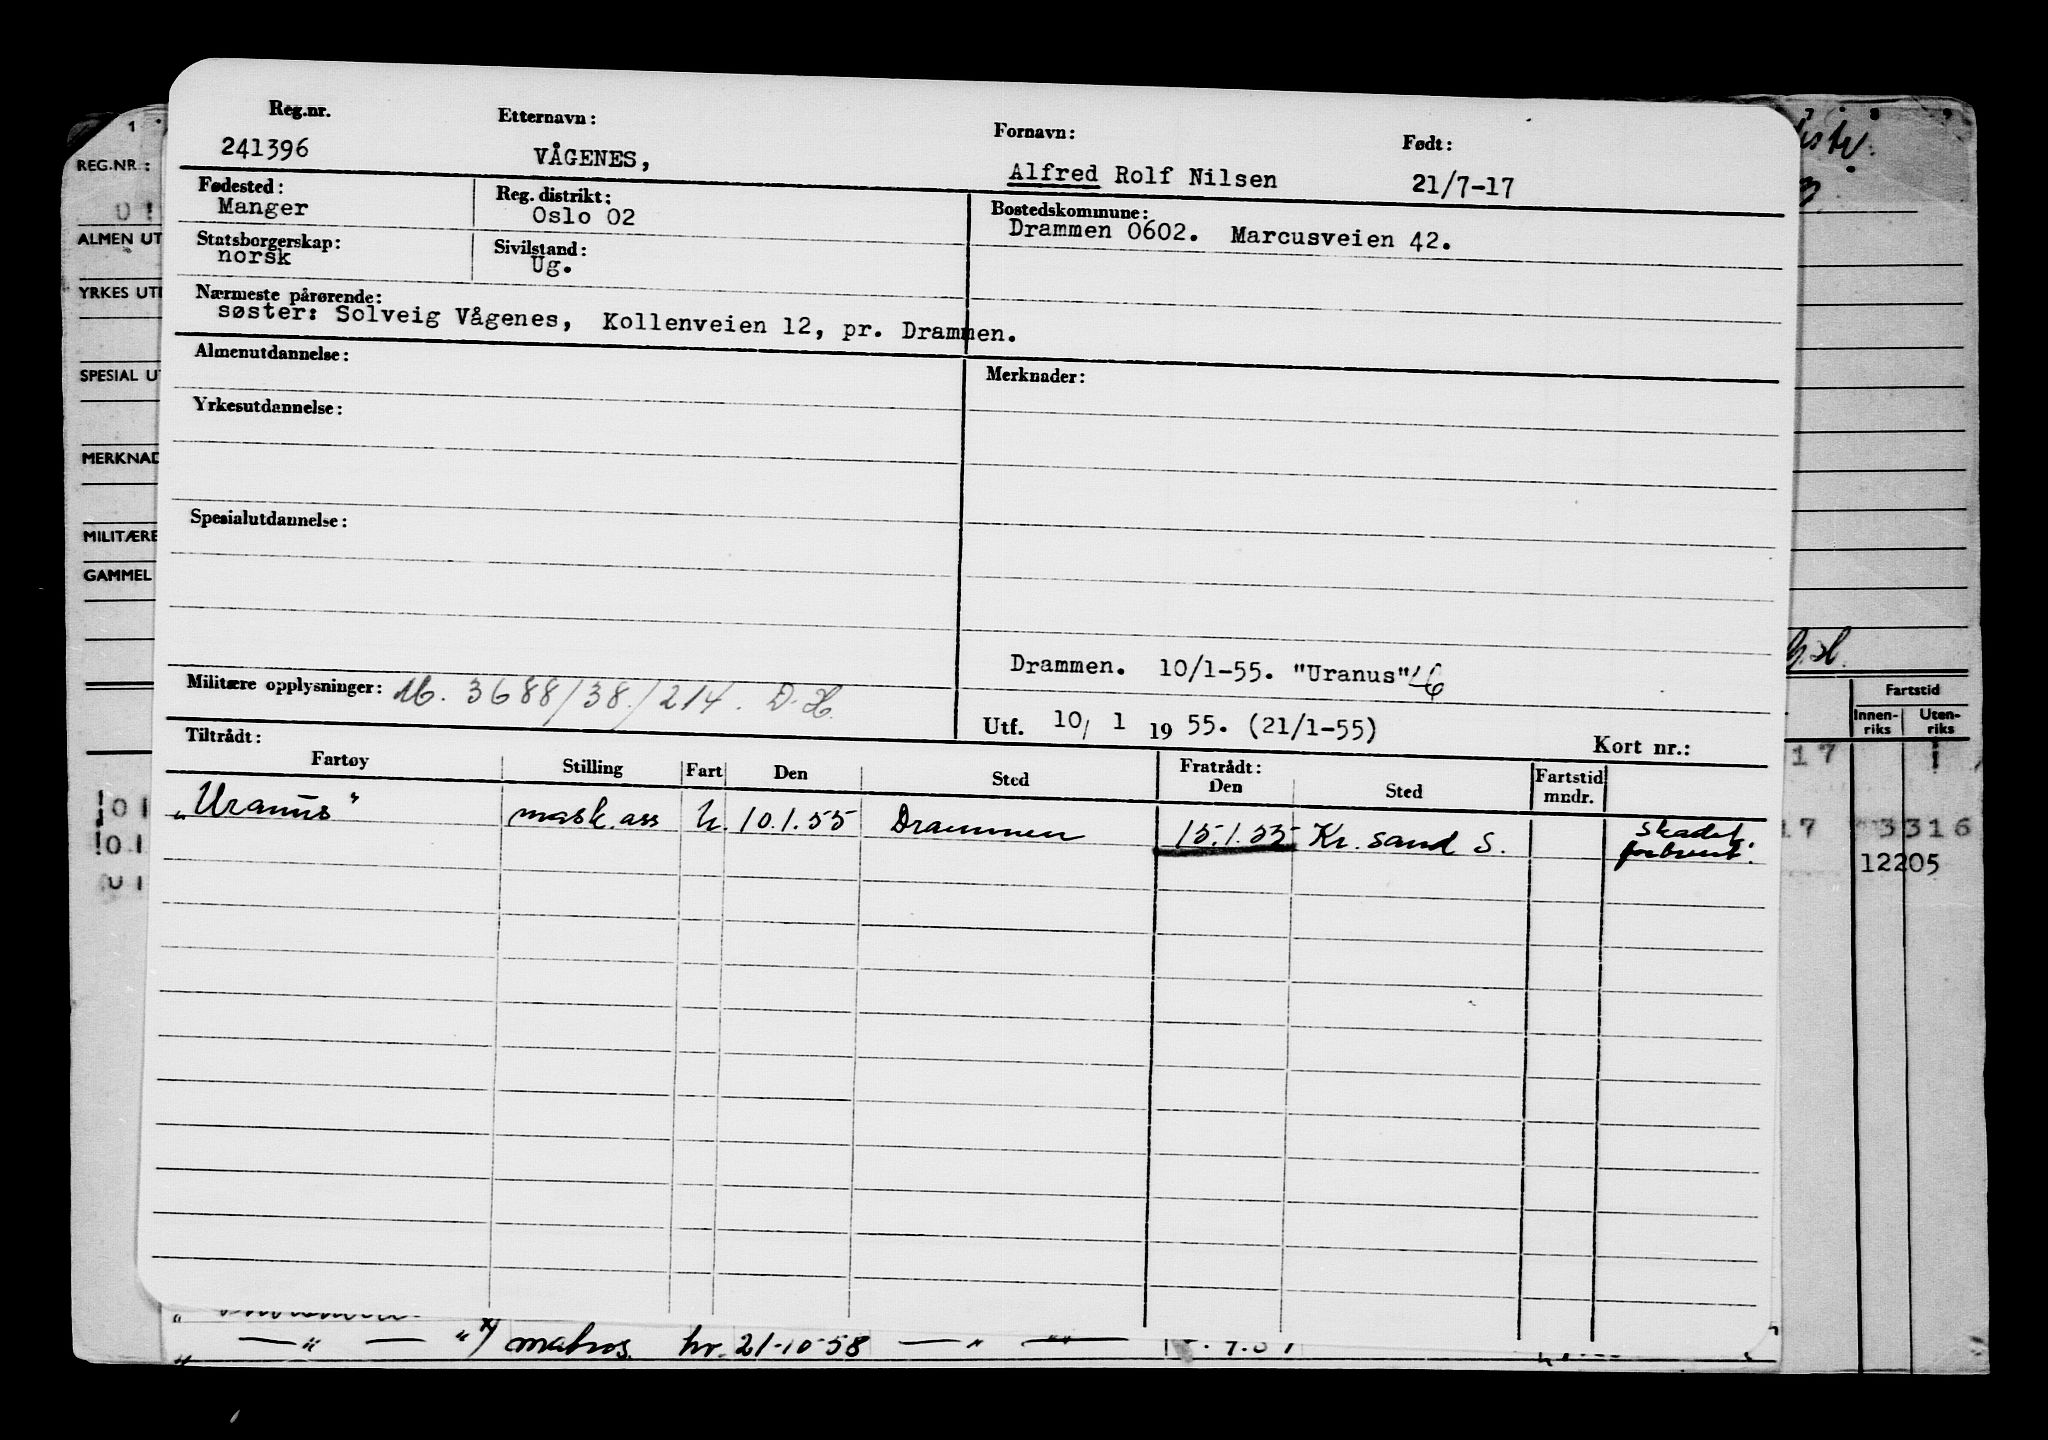 Reg.nr. Etternavn: Fornavn: Født:
241396 VÅGENES, Alfred Rolf Nilsen 21/7-17
Fødested: Reg. distrikt: Bostedskommune:
Manger Oslo 02 Drammen 0602. Marcusveien 42.
Statsborgerskap: Sivilstand:
norsk Ug.
Nærmeste pårørende:
søster: Solveig Vågenes, Kollenveien 12, pr. Drammen.
Almenutdannelse: Merknader:
Yrkesutdannelse:
Spesialutdannelse:
Drammen. 10/1-55. "Uranus"
Militære opplysninger: M. 3688/38./214. D.H.
Utf. 10/ 1 19 55. (21/1-55) Kort nr.:
Tiltrådt: Fratrådt:
Fartøy Stilling Fart Den Sted Den Sted Fartstid mndr.
"Uranus" mask. ass 10.1.55 Drammen 15.1.55 Kr. sand S. skadet
1
REG.NR.:
ALMEN UT
YRKES UT
SPESIAL U
MERKNAD
MILITÆRE
GAMMEL
Fartstid
Innen-riks Uten-riks
17
17 3316
12205
!01
!01
01
— " — " matros. hr. 21-10-58 — " —